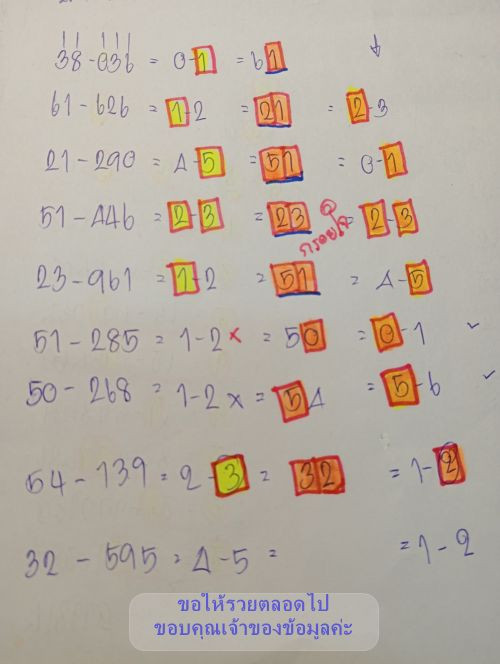 38 - 036 = 0-1 = 61
61 - 626 = 1-2 = 21 = 2-3
21 - 290 = 4-5 = 51 = 0-1
51 - 446 = 2-3 = 23 = 2-3
23 - 961 = 1-2 = 51 = 4-5
51 - 285 = 1-2 x = 50 = 0-1 ✓
50 - 268 = 1-2 x = 54 = 5-6 ✓
54 - 139 = 2-3 = 32 = 1-2
32 - 595 = 4-5 = = 1-2
ขอให้รวยตลอดไป
ขอบคุณเจ้าของข้อมูลค่ะ